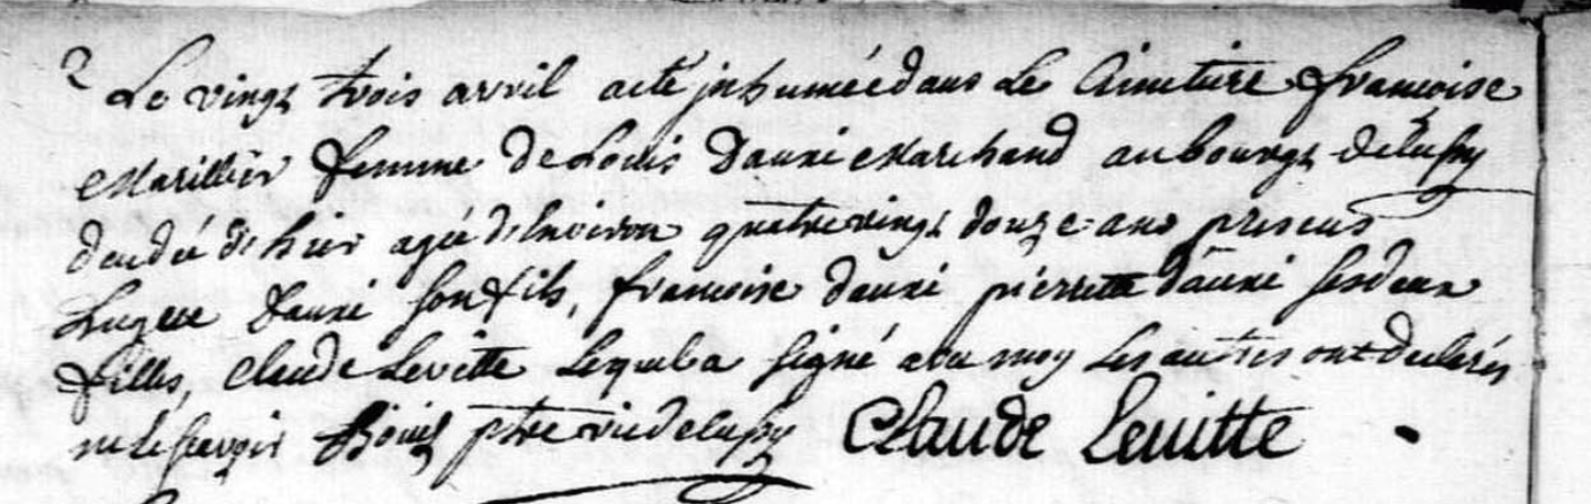 2 Le vingt trois avril a eté inhumée dans le Cimetiere françoise
Marillier femme de Louis Dauxi Marchand au bourgt de lussy
decedée d'hier agée d'environ quatre vingt douze ans presens
Dauxi son fils, françoise dauxi pierrette dauxi ses deux
filles, claude Levitte lequel a signé avec moy les autres ont declarés
ne le sçavoir ptre vic de lussy Claude Levitte